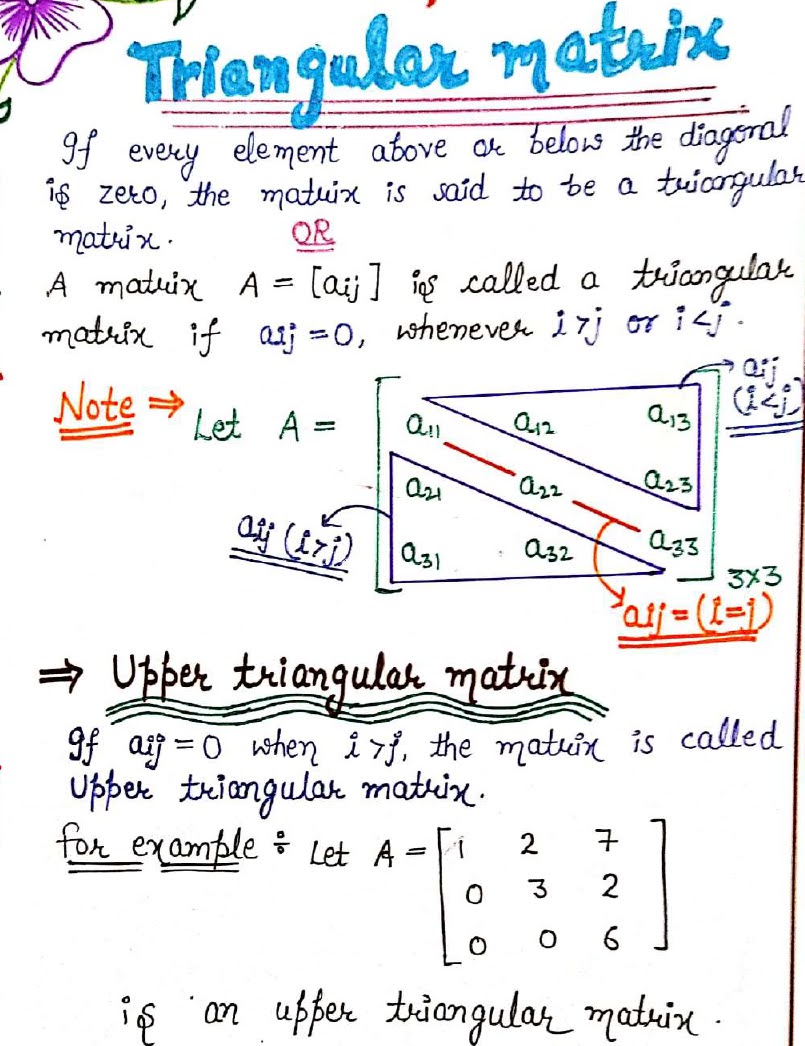 Triangular matrix
If every element above or below the diagonal
is zero, the matrix is said to be a triangular
matrix. OR
A matrix A = [aij] is called a triangular
matrix if aij = 0, whenever i>j or i<j.
Note ⇒ Let A =
a11 a12 a13
a21 a22 a23
a31 a32 a33
3×3
aij
(i<j)
aij (i>j)
aij = (i=j)
⇒ Upper triangular matrix
If aij = 0 when i>j, the matrix is called
Upper triangular matrix.
for example ÷ Let A = [1 2 7
0 3 2
0 0 6]
is an upper triangular matrix.